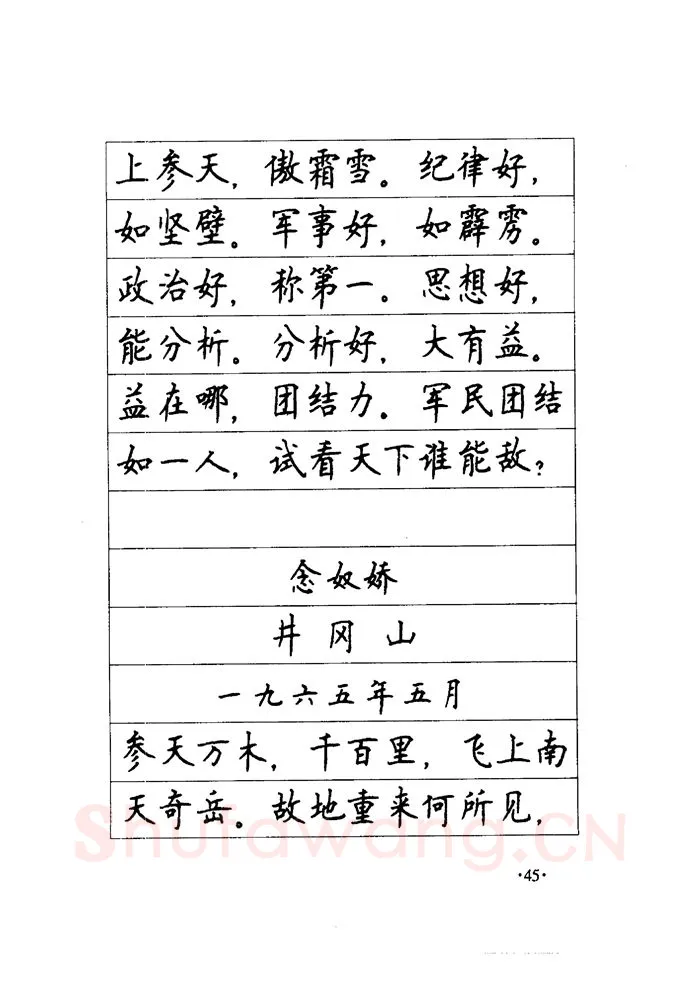 上参天，傲霜雪。纪律好，
如坚壁。军事好，如霹雳。
政治好，称第一。思想好，
能分析。分析好，大有益。
益在哪，团结力。军民团结
如一人，试看天下谁能敌？
念奴娇
井冈山
一九六五年五月
参天万木，千百里，飞上南
天奇岳。故地重来何所见，
Shufawang.CN
·45·